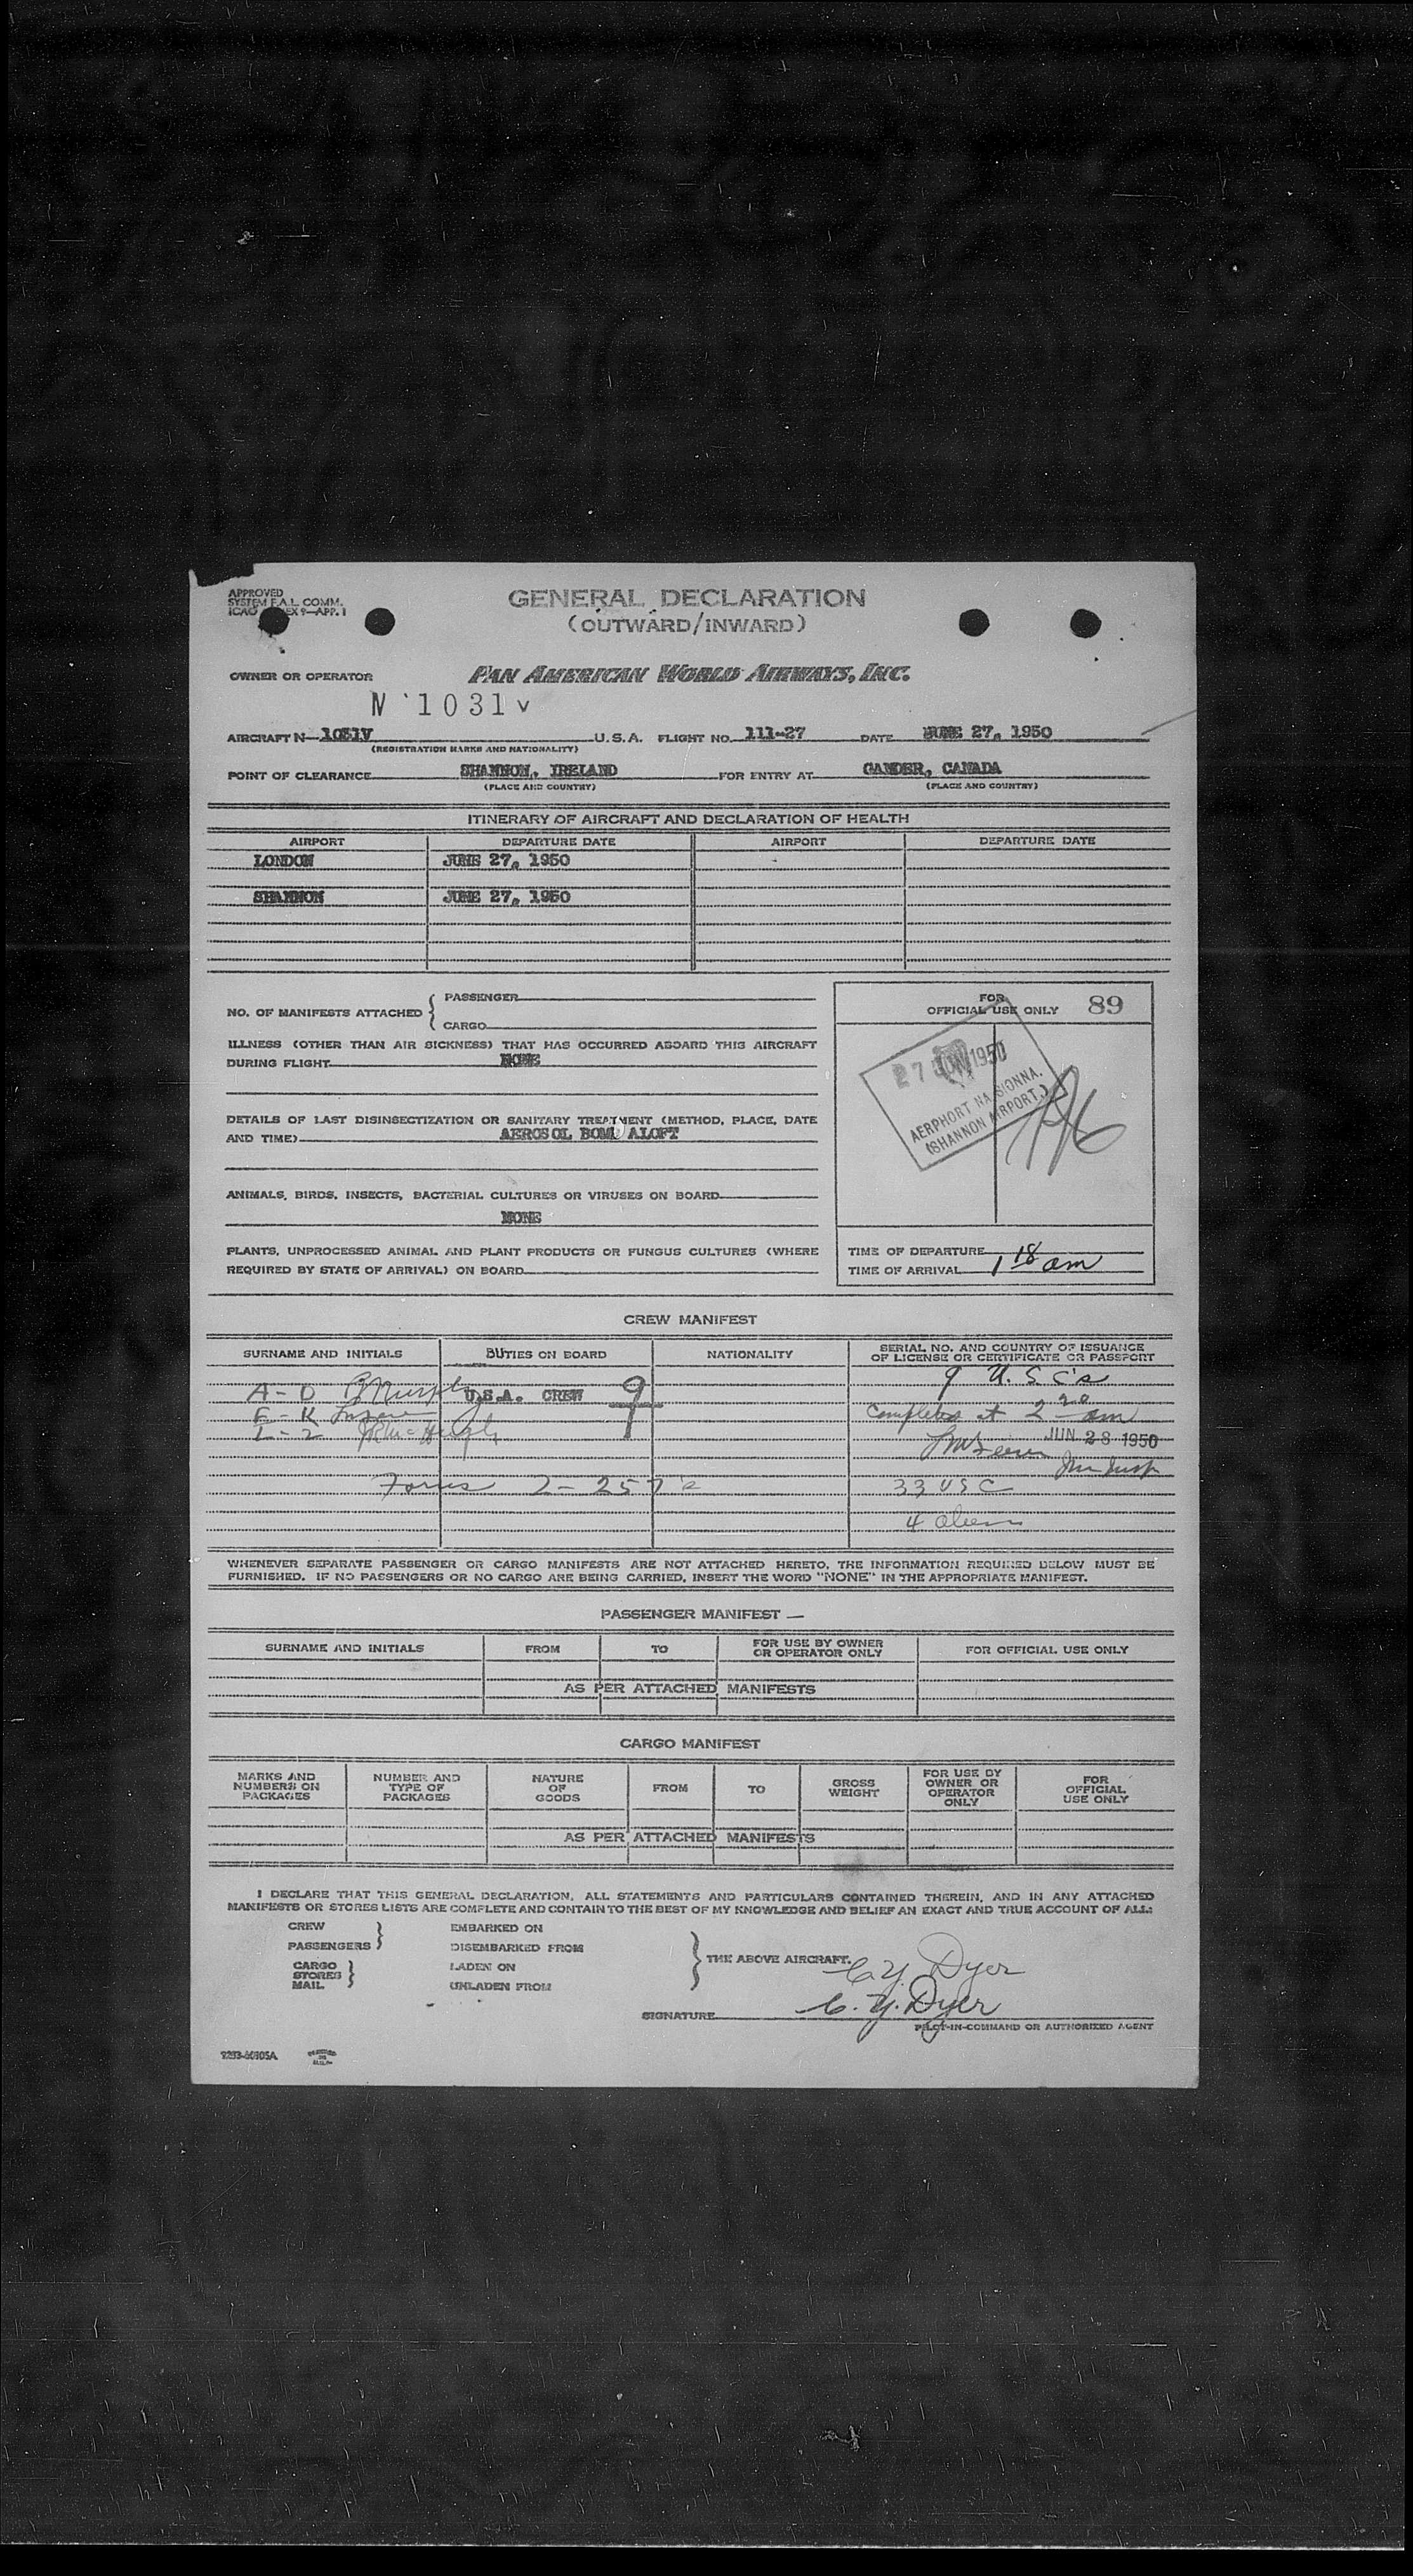 APPROVED
SYSTEM F.A.L. COMM.
ICAO EX 9—APP. 1
GENERAL DECLARATION
(OUTWARD/INWARD)
OWNER OR OPERATOR PAN AMERICAN WORLD AIRWAYS, INC.
N 1031V
AIRCRAFT N- 1031V U.S.A. FLIGHT NO. 111-27 DATE JUNE 27, 1950
(REGISTRATION MARKS AND NATIONALITY)
POINT OF CLEARANCE SHANNON, IRELAND FOR ENTRY AT GANDER, CANADA
(PLACE AND COUNTRY) (PLACE AND COUNTRY)
ITINERARY OF AIRCRAFT AND DECLARATION OF HEALTH
AIRPORT DEPARTURE DATE AIRPORT DEPARTURE DATE
LONDON JUNE 27, 1950
SHANNON JUNE 27, 1950
NO. OF MANIFESTS ATTACHED { PASSENGER
CARGO
ILLNESS (OTHER THAN AIR SICKNESS) THAT HAS OCCURRED ABOARD THIS AIRCRAFT
DURING FLIGHT NONE
DETAILS OF LAST DISINSECTIZATION OR SANITARY TREATMENT (METHOD, PLACE, DATE
AND TIME) AEROSOL BOMB ALOFT
ANIMALS, BIRDS, INSECTS, BACTERIAL CULTURES OR VIRUSES ON BOARD
NONE
PLANTS, UNPROCESSED ANIMAL AND PLANT PRODUCTS OR FUNGUS CULTURES (WHERE
REQUIRED BY STATE OF ARRIVAL) ON BOARD
FOR
OFFICIAL USE ONLY 89
27 JUN 1950
AERPHORT NA SIONNA.
(SHANNON AIRPORT.)
TIME OF DEPARTURE
TIME OF ARRIVAL 1 18 am
CREW MANIFEST
SURNAME AND INITIALS DUTIES ON BOARD NATIONALITY SERIAL NO. AND COUNTRY OF ISSUANCE
OF LICENSE OR CERTIFICATE OR PASSPORT
9 U.S C's
A-D Murphy U.S.A. CREW 9
E-K Completed at 2 20 am
L-Z McHugh JUN 28 1950
Forms 2-257's 33 USC
4 aliens
WHENEVER SEPARATE PASSENGER OR CARGO MANIFESTS ARE NOT ATTACHED HERETO, THE INFORMATION REQUIRED BELOW MUST BE
FURNISHED. IF NO PASSENGERS OR NO CARGO ARE BEING CARRIED, INSERT THE WORD "NONE" IN THE APPROPRIATE MANIFEST.
PASSENGER MANIFEST —
SURNAME AND INITIALS FROM TO FOR USE BY OWNER
OR OPERATOR ONLY FOR OFFICIAL USE ONLY
AS PER ATTACHED MANIFESTS
CARGO MANIFEST
MARKS AND
NUMBERS ON
PACKAGES NUMBER AND
TYPE OF
PACKAGES NATURE
OF
GOODS FROM TO GROSS
WEIGHT FOR USE BY
OWNER OR
OPERATOR
ONLY FOR
OFFICIAL
USE ONLY
AS PER ATTACHED MANIFESTS
I DECLARE THAT THIS GENERAL DECLARATION, ALL STATEMENTS AND PARTICULARS CONTAINED THEREIN, AND IN ANY ATTACHED
MANIFESTS OR STORES LISTS ARE COMPLETE AND CONTAIN TO THE BEST OF MY KNOWLEDGE AND BELIEF AN EXACT AND TRUE ACCOUNT OF ALL:
CREW EMBARKED ON
PASSENGERS } DISEMBARKED FROM
CARGO
STORES
MAIL } LADEN ON
UNLADEN FROM } THE ABOVE AIRCRAFT.
C.Y. Dyer
SIGNATURE C. Y. Dyer
PILOT-IN-COMMAND OR AUTHORIZED AGENT